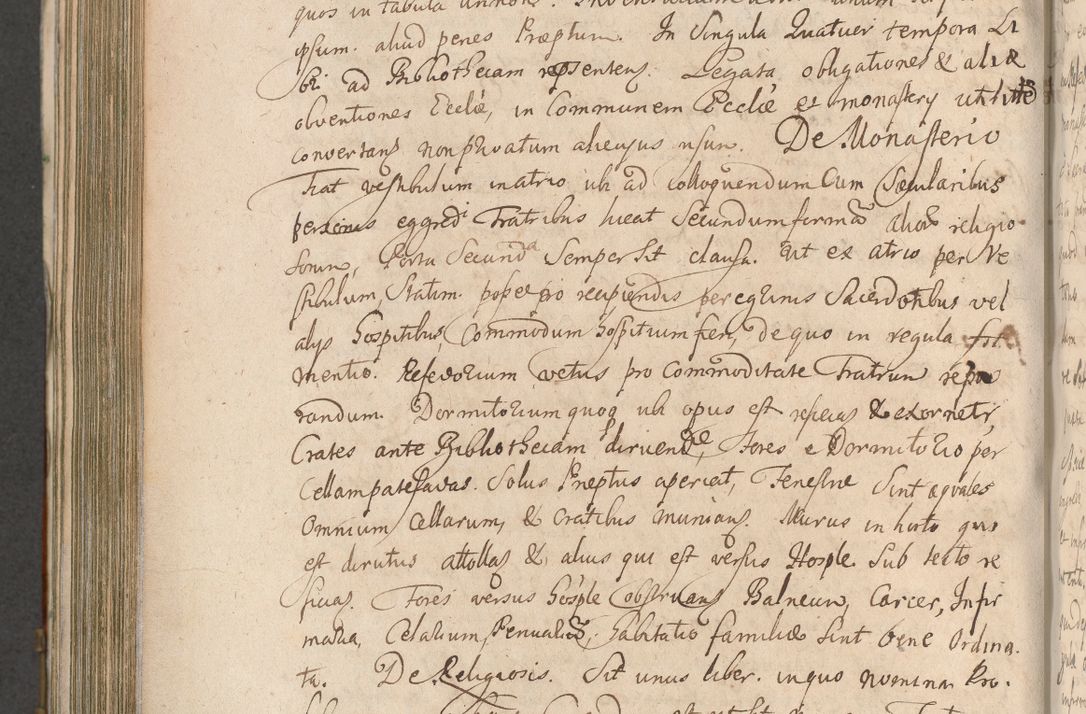 quos in tabula
ipsum. aliud penes Præptum. In Singula Quatuor tempora Li
bri ad Bibliothecam repsentent. Legata obligationes & aliæ
obventiones Ecclię, in Communem Ecclię et monastery utilitte
convertant non privatum alicujus usum. De Monasterio
Fiat vestibulum in atrio ubi ad colloquendum Cum Sæcularibus
personis eggredi Fratribus liceat Secundum formã alior religio
sorum, Porta Secunda Semper Sit clausa. Ut ex atrio per Ve
stibulum, Statim pro recipiendis peregrinis Sacerdotibus vel
alys hospitibus, Commodum hospitium fieri, de quo in regula fit
mentio. Refectorium vetus pro Commoditate Fratrum repa
randum. Dormitorium quoq ubi opus est reficiat & exornetr,
Crates ante Bibliothecam diruendæ, Fores e Dormitorio per
Cellam patefactas. Solus Præptus aperiet, Fenestræ Sint æquales
Omnium Cellarum, & Cratibus muniant. Murus in horto qui
est dirutus attollat & alius qui est versus Hosple Sub tecto re
ficiat. Fores versus hosple Observant Balneum, Carcer, Infir
maria, Celarium Penualis, habitatio familiæ Sint bene Ordina.
ta. De Religiosis. Sit unus liber in quo nomina Pro.